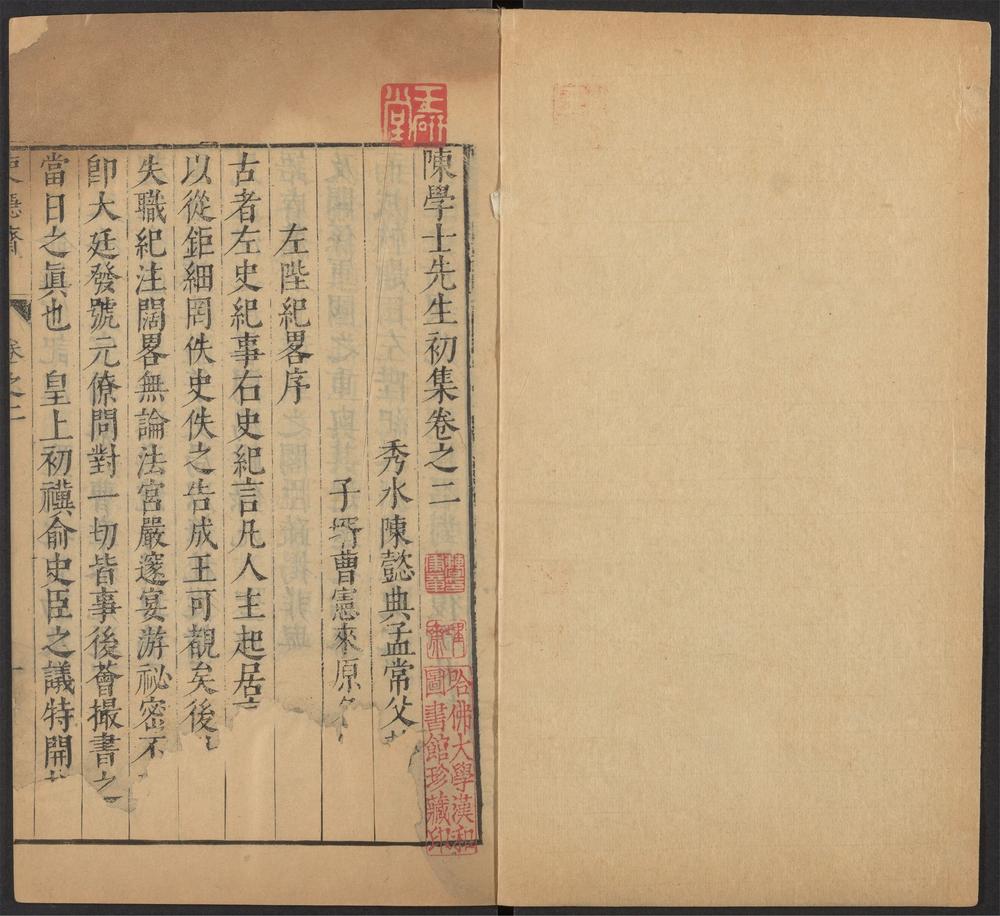 陳學士先生初集卷之二
秀水陳懿典孟常父
子壻曹憲來原
左陛紀畧序
古者左史紀事右史紀言凡人主起居
以從鉅細罔佚史佚之告成王可觀矣後
失職紀注闊畧無論法宮嚴邃宴游祕密不
卽大廷發號元僚問對一切皆事後薈撮書之
當日之眞也 皇上初禩俞史臣之議特開
卷之二
研堂
哈佛大學漢和
圖書館珍藏印